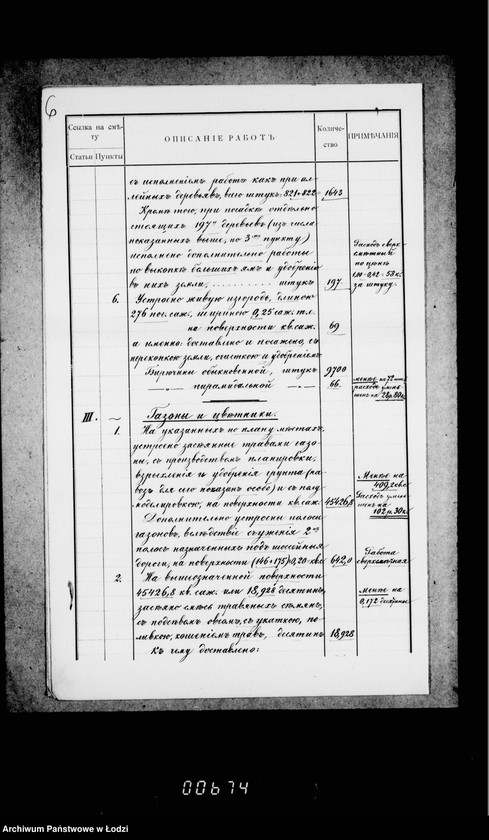 6
Ссылка на смѣту
Статьи Пункты
ОПИСАНІЕ РАБОТЪ
Количество
ПРИМѢЧАНІЯ
съ исполненіемъ работъ какъ при ал-
лейныхъ деревьяхъ, всего штукъ 821+822 1643
Кромѣ того, при посадкѣ отдѣльно
стоящихъ 197 деревьевъ (из числа
показанныхъ выше, по 3 пункту)
исполнено дополнительно работы
по выкопкѣ большихъ ямъ и удобренію
въ нихъ земли, штукъ 197
Расходъ сверх-
смѣтный
по цѣнѣ
за штуку.
6. Устроено живую изгородь, длиною
276 пог. саж., шириною 0,25 саж.
на поверхности кв. саж. 69
а именно: доставлено и посажено, съ
перекопкою земли, очисткою и удобреніемъ
Бирючины обыкновенной, штукъ 9700
— пирамидальной — 66.
менѣе на 72 шт.
расходъ умень-
шенъ на 28 р. 80 к.
III. Газоны и цвѣтники.
1. На указанныхъ по плану мѣстахъ,
устроено засѣянные травами газо-
ны, съ производствомъ планировки,
взрыхленія и удобренія грунта (на-
возъ для него показанъ особо) и съ
на поверхности кв. саж. 45426,8
Менѣе на
409,2 кв. с.
Расходъ умень-
шенъ на
102 р. 30 к.
Дополнительно устроены полосы
газоновъ, вслѣдствіе съуженія 2
полосъ назначенныхъ подъ шоссейныя
дороги, на поверхности (146+175) 0,20 кв. с. 642,0
Работа
сверхсмѣтная
2. На вышеозначенной поверхности
45426,8 кв. саж. или 18,928 десятинъ,
засѣяно смѣсь травяныхъ сѣмянъ,
съ подсѣвомъ овсомъ, съ укаткою, по-
ливкою, кошеніемъ травъ, десятинъ 18,928
Менѣе на
0,172 десятины
Къ сему доставлено:
00674
Archiwum Państwowe w Łodzi